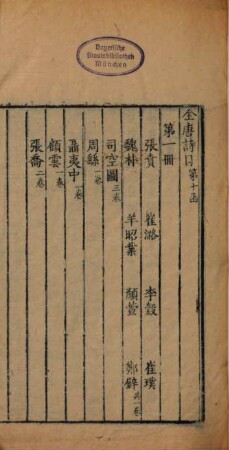 Bayerische
Staatsbibliothek
München
全唐詩目第十函
第一冊
張賁 崔璐 李縠 崔璞
魏朴 羊昭業 顏萱 鄭璧共一卷
司空圖三卷
周繇一卷
聶夷中一卷
顧雲一卷
張喬二卷